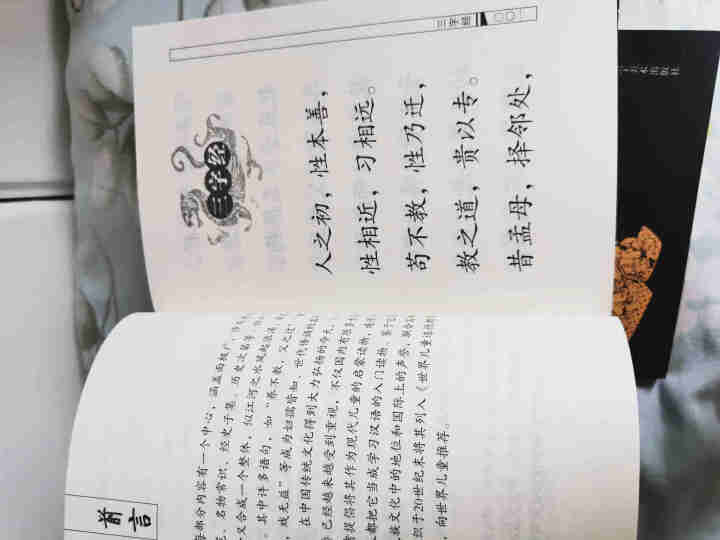 前言
每部分内容有一个中心，涵盖面极广，
、名物常识、经史子集、历史次第等
又合成一个整体，似江河之水
其中许多语句，如“养不教，父之过”
，戏无益”等成为妇孺皆知、世代传诵
在中国传统文化得到大力弘扬的今天，
已经越来越受到重视，不仅国内有
提倡将其作为现代儿童的启蒙读物，
都把它当成学习汉语的入门读物。鉴于
族文化中的地位和国际上的声誉，联合
织于20世纪末将其列入《世界儿童道德
，向世界儿童推荐。
三字经
〇〇一
三字经
人之初，性本善，
性相近，习相远。
苟不教，性乃迁，
教之道，贵以专。
昔孟母，择邻处，
美术出版社